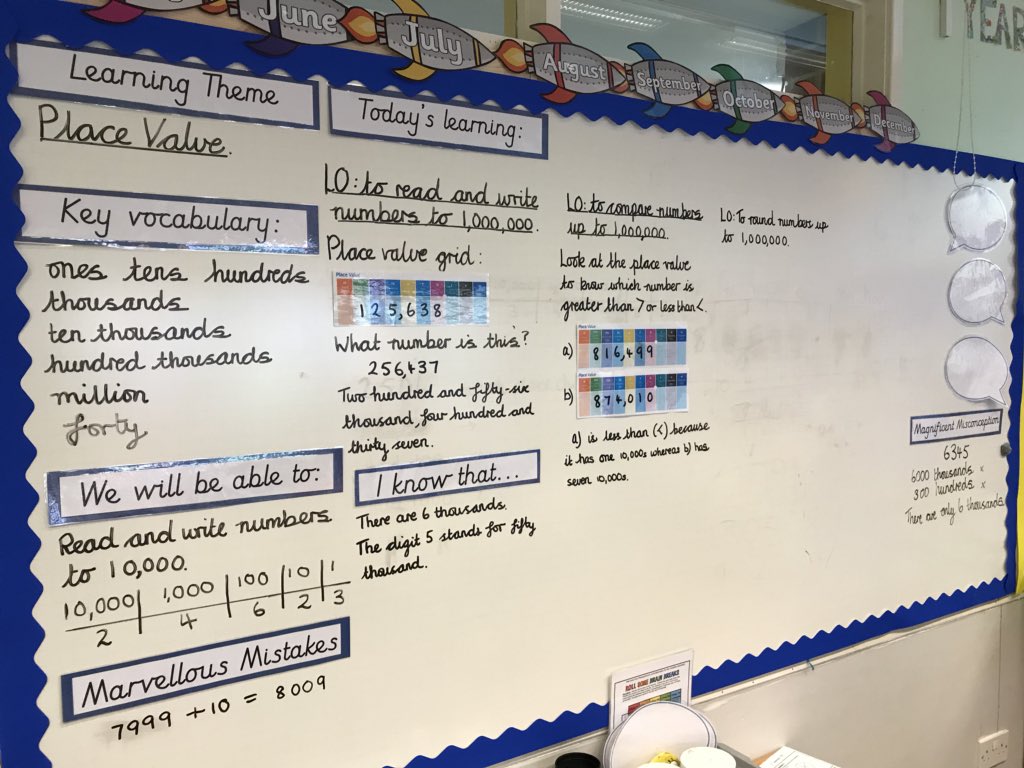 June
July
August
September
October
November
December
YEAR
Learning Theme
Place Value.
Key vocabulary:
ones tens hundreds
thousands
ten thousands
hundred thousands
million
forty
We will be able to:
Read and write numbers
to 10,000.
10,000 1,000 100 10 1
2 4 6 2 3
Marvellous Mistakes
7999 + 10 = 8009
Today's learning:
LO: to read and write
numbers to 1,000,000.
Place value grid:
Place Value
125,638
What number is this?
256,437
Two hundred and fifty-six
thousand, four hundred and
thirty seven.
I know that...
There are 6 thousands.
The digit 5 stands for fifty
thousand.
LO: to compare numbers
up to 1,000,000.
Look at the place value
to know which number is
greater than > or less than <.
Place Value
a) 816,499
Place Value
b) 874,010
a) is less than (<) because
it has one 10,000s whereas b) has
seven 10,000s.
LO: To round numbers up
to 1,000,000.
Magnificent Misconception
6345
6000 thousands x
300 hundreds x
There are only 6 thousands.
ROLL SOME BRAIN BREAKS